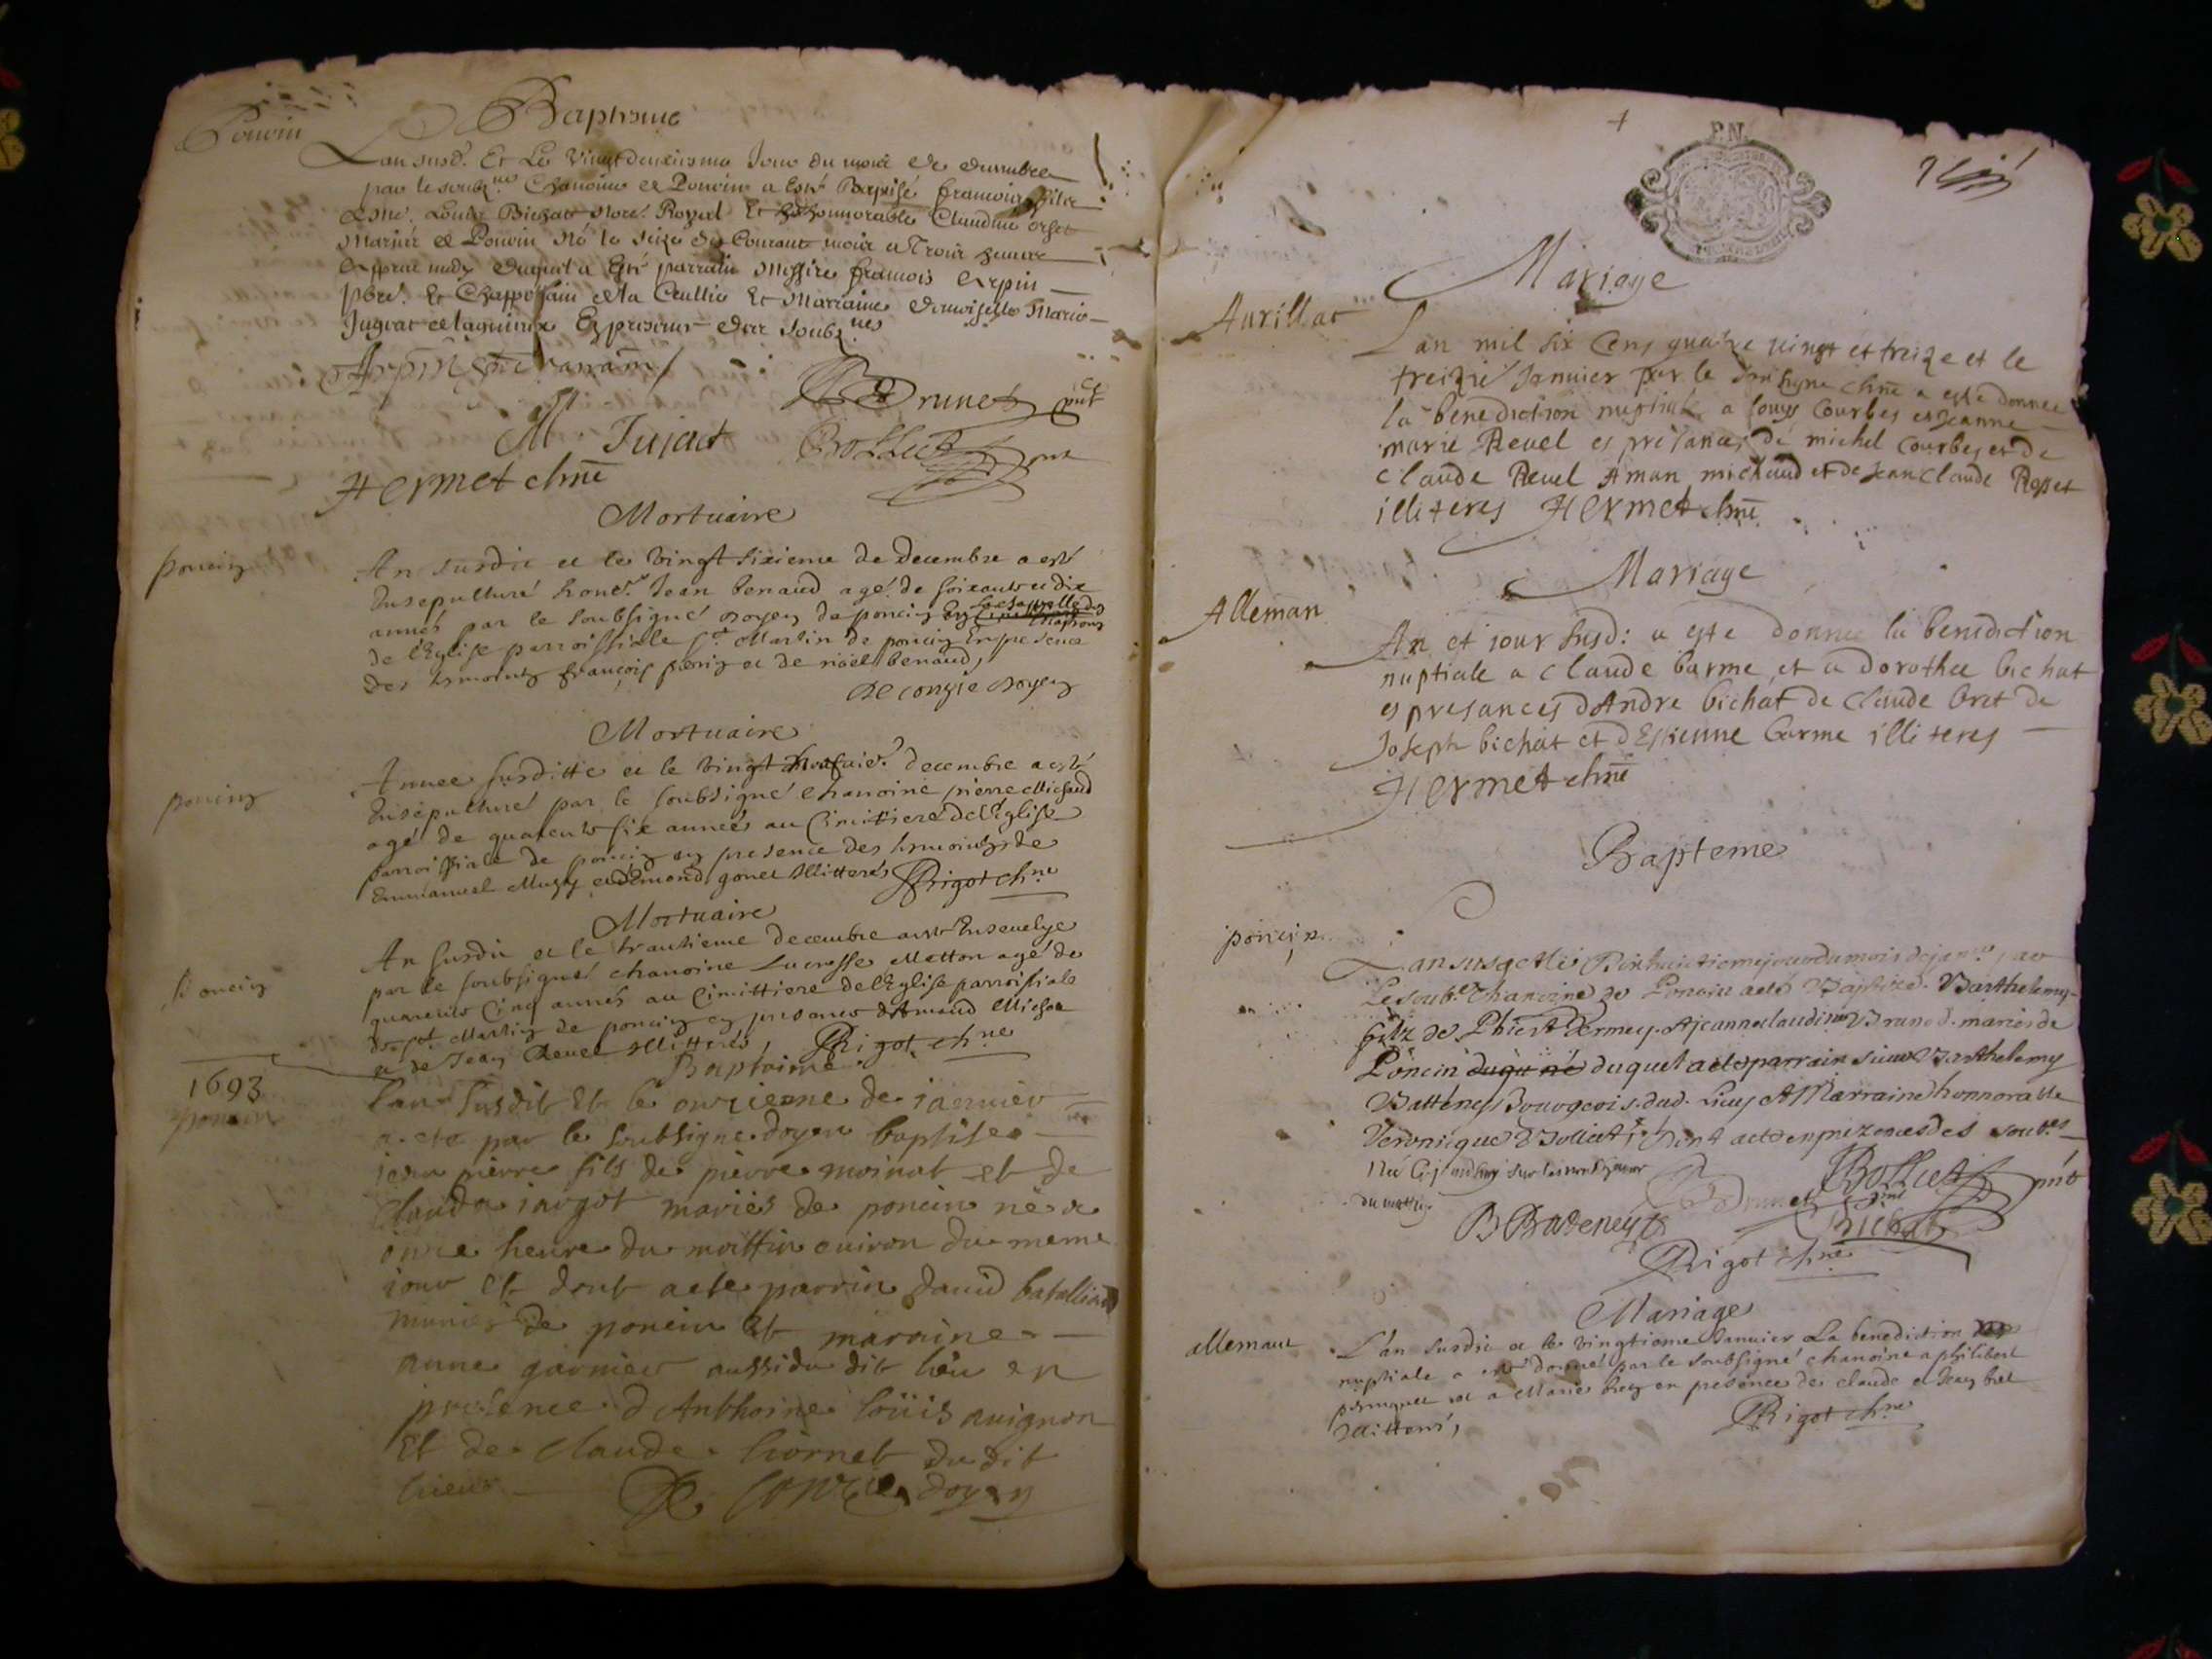 Baptisme
Poncin
L'an susd. Et Le Vingt deuxiesme Jour du mois de decembre
par le soubz.né Chanoine de Poncin a Esté Baptisé francois filz
de me. Louis Bichat not.e Royal Et de honnorable Claudine orset
Mariés de Poncin Né le seize du Courant mois a Trois heures
apprès midy duquel a Esté parrain Messire francois Arpin
pbre. Et Chappellain de la Cueillie Et Marraine damoiselle Marie
Jujat de laquieux En presence des soubz.nes
Arpin parrain
B Brunet pnt
M Jujat Bolliet pnt
Hermet chne
Mortuaire
poncin
An susdit et le vingt sixieme de Decembre a esté
Ensepulturé hone. Jean benaud agé de soixante et dix
annés par le soubsigné doyen de poncin En la chapelle des
chaprons
de l'Eglise parroissiale St. Martin de poncin En presence
des temoins françois poncin et de noël benaud,
De congie doyen
Mortuaire
poncin
Annee susditte et le vingt decembre a esté
Ensepulturé par le soubsigné chanoine pierre Michaud
agé de quarente six annés au Cimittiere de l'Eglise
parroissiale de poncin en presence des temoins de
Emmanuel Mugy et Edmond gonet Illitterés Rigot ch.ne
Mortuaire
poncin
An susdit et le trantieme decembre a esté Ensevelye
par le soubsigné chanoine Lucresse Metton agé de
quarente Cinq annés au Cimittiere de l'Eglise parroissiale
de St. Martin de poncin en presence d'Armand Michea
et de Jean Revel Illitterés, Rigot ch.ne
Baptaime
1693
poncin
L'an susdit Et le onzieme de janvier
a este par le soubsigne doyen baptise
jean pierre fils de pierre moinat et de
Clauda jargot mariés de poncin né a
onze heure du mattin environ du meme
jour Et dont a este parrin david batallion
de poncin Et maraine
anne garnier aussi du dit lieu en
presence d'Anthoine loüis avignon
Et de Claude liornet du dit
lieux De congie doyen
Mariage
Aurillac
L'an mil six cens quatre vingt et treize et le
treizie Janvier par le soubsigne chne a esté donnee
la benediction nuptiale a louys Courbes et Jeanne
marie Revel es presances de michel Courbes et de
Claude Revel Aman michaud et de Jean Claude Rosset
illiteres Hermet chne
Mariage
Alleman
An et jour susd: a esté donnee la benediction
nuptiale a Claude barme, et a dorothee bichat
es presances d'Andre bichat de Claude bret de
Joseph bichat et d'Estienne barme illiteres
Hermet chne
Bapteme
poncin
L'an susd et le Dixhuictieme jour du mois de janv. par
Le soub.é Chanoine de Poncin a eté Baptizé Barthelemy
filz de Phibert Dermey. & jeanne claudine Brunet. mariés de
Poncin duqu né duquel a eté parrain sieur Barthelemy
Batteney Bourgeois. dud. Lieu & Marraine honnorable
Veronique Bolliet; dont acte en prezences des soub.és
Né Cejourdhuy sur les neuf heures
du mattin
Bolliet pnt
Brunet pnt
B Bateney
Bichat
Rigot ch.ne
Mariage
allemant
L'an susdit et le vingtieme Janvier La benediction
nuptiale a esté donné par le soubsigné chanoine a philibert
et a Marie bret en presence de claude et Jean bret
Illitterés,
Rigot ch.ne